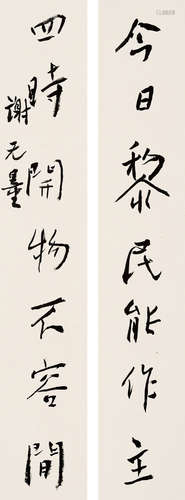 今日黎民能作主
四時開物不容間
謝无量